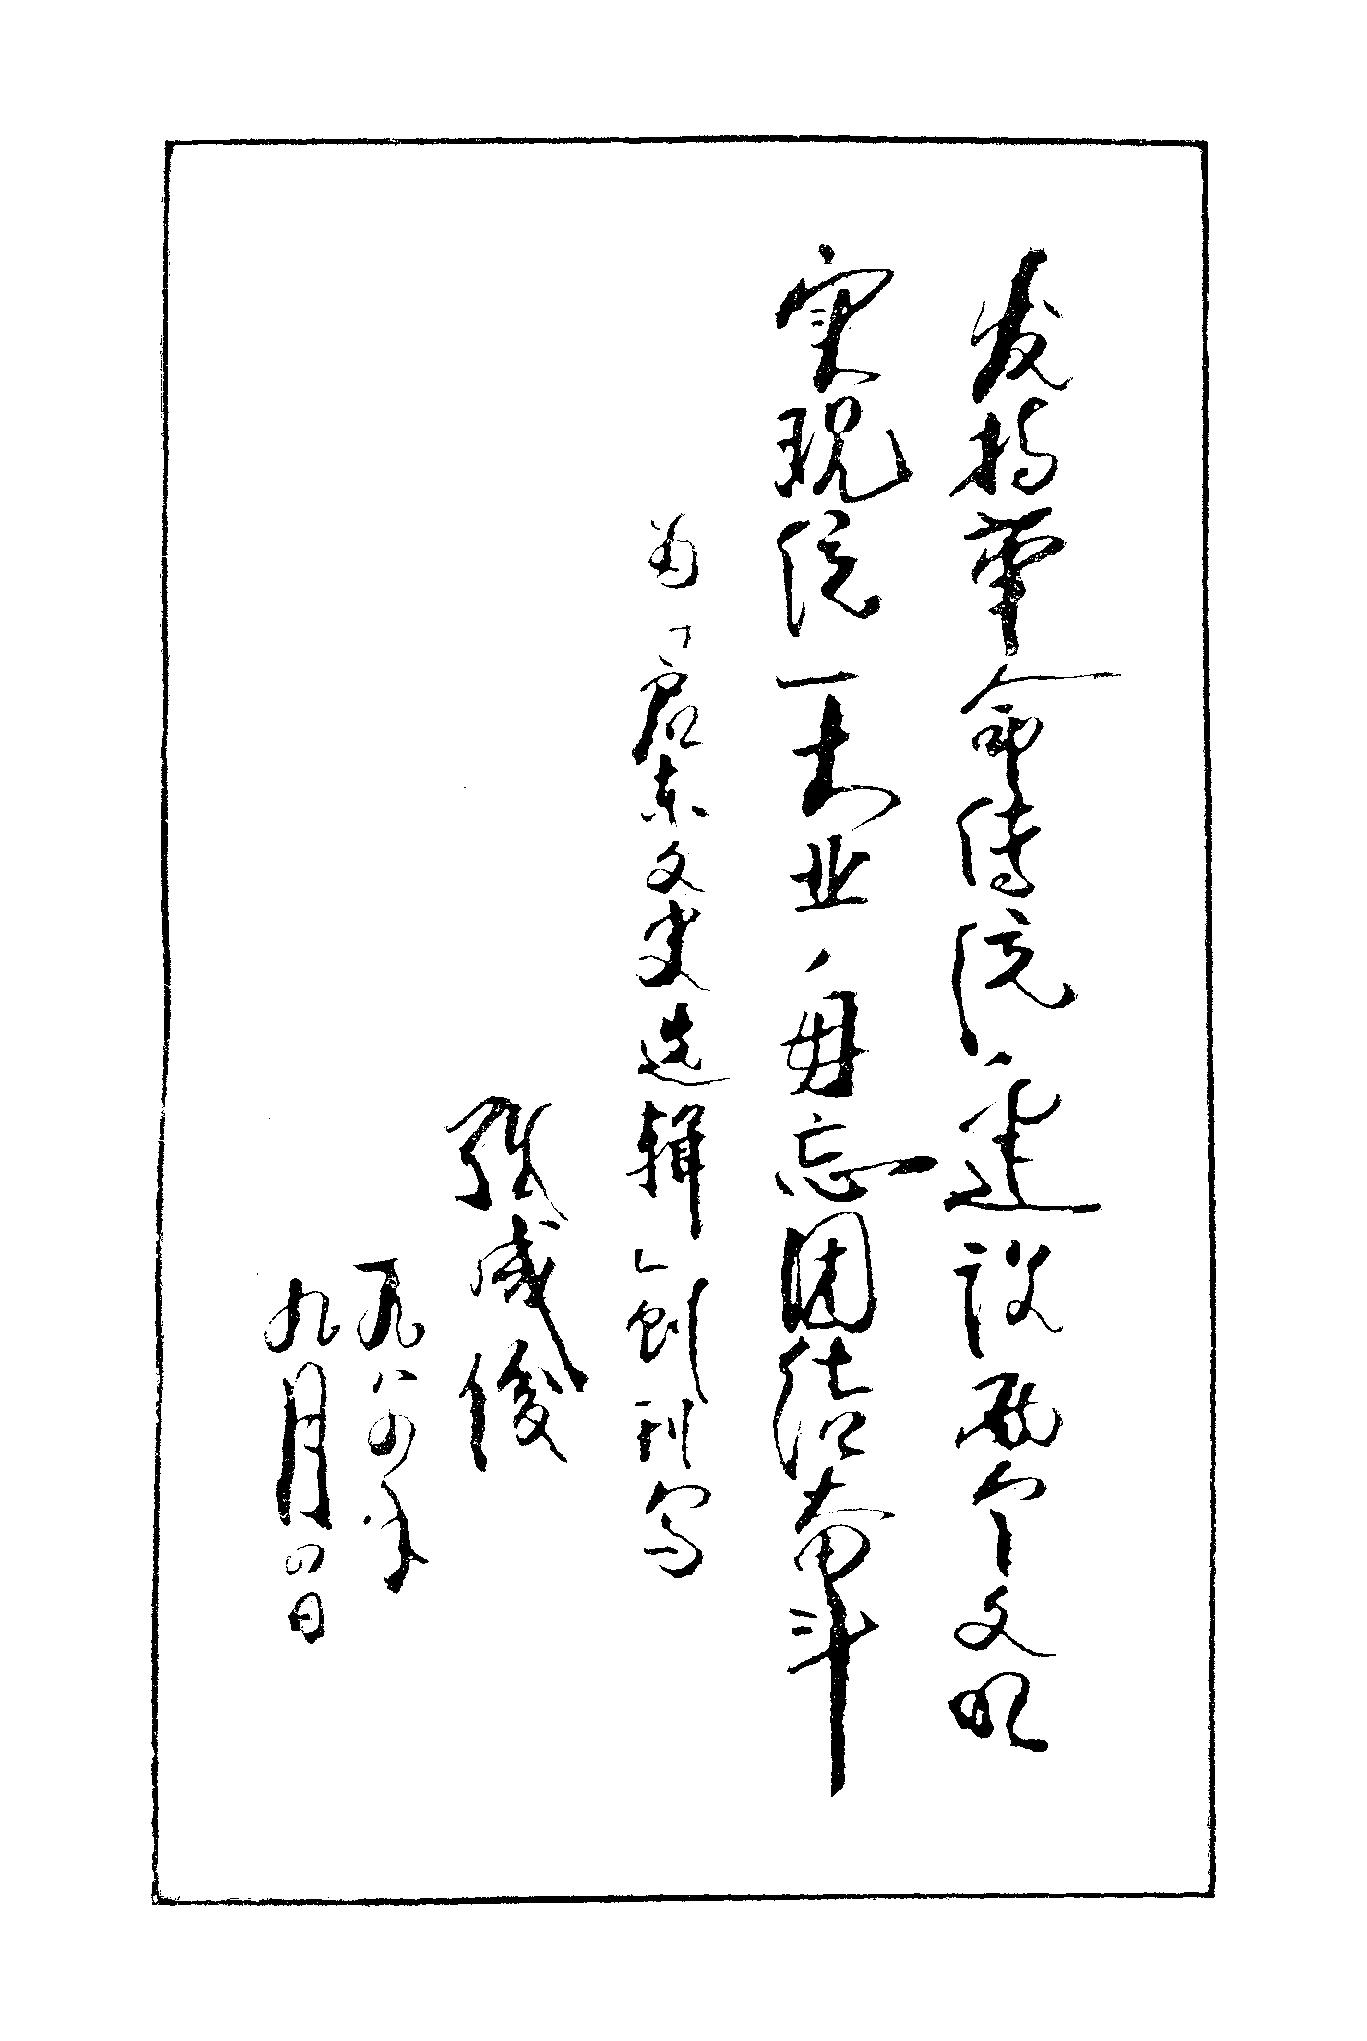 发扬革命传统、建设两个文明
实现统一大业、毋忘团结奋斗
为「启东文史选辑」创刊写
张 俊
一九八四年
九月四日